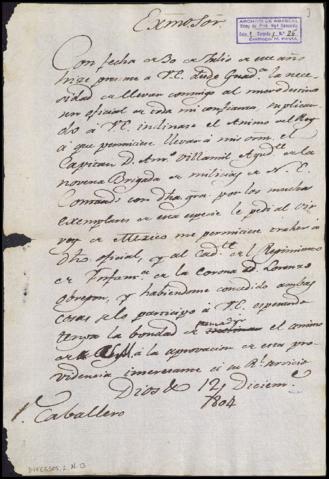 Exmo Sor.
ARCHIVO DE ABASCAL
Con fecha de 30 de Julio de este año
hize presente a V.E. desde Guadª la nece-
sidad de llevar conmigo al nuevo destino
un oficial de toda mi confianza suplican-
do á V.E. inclinase el Animo del Rey
á que permitiese llevar á mis orns. el
Capitan D. Antº Villamil Aydte de la
novena Brigada de milicias de N. E.
Contando con dha gra. por los muchos
exemplares de esa especie le pedi al Vir-
rey de Mexico me permitiese traher a
dho oficial, y al Cadte del Regimiento
de Infanta de la Corona D. Lorenzo
Obregon, y habiendome concedido ambas
cosas se lo participo á V.E. esperando
tenga la bondad de el animo
de S.M. á la aprovacion de esta pro-
videncia interesante a su Rl. servicio
Dios &c 12 Diciem.e
1804
Caballero
DIVERSOS, 2, N. 13